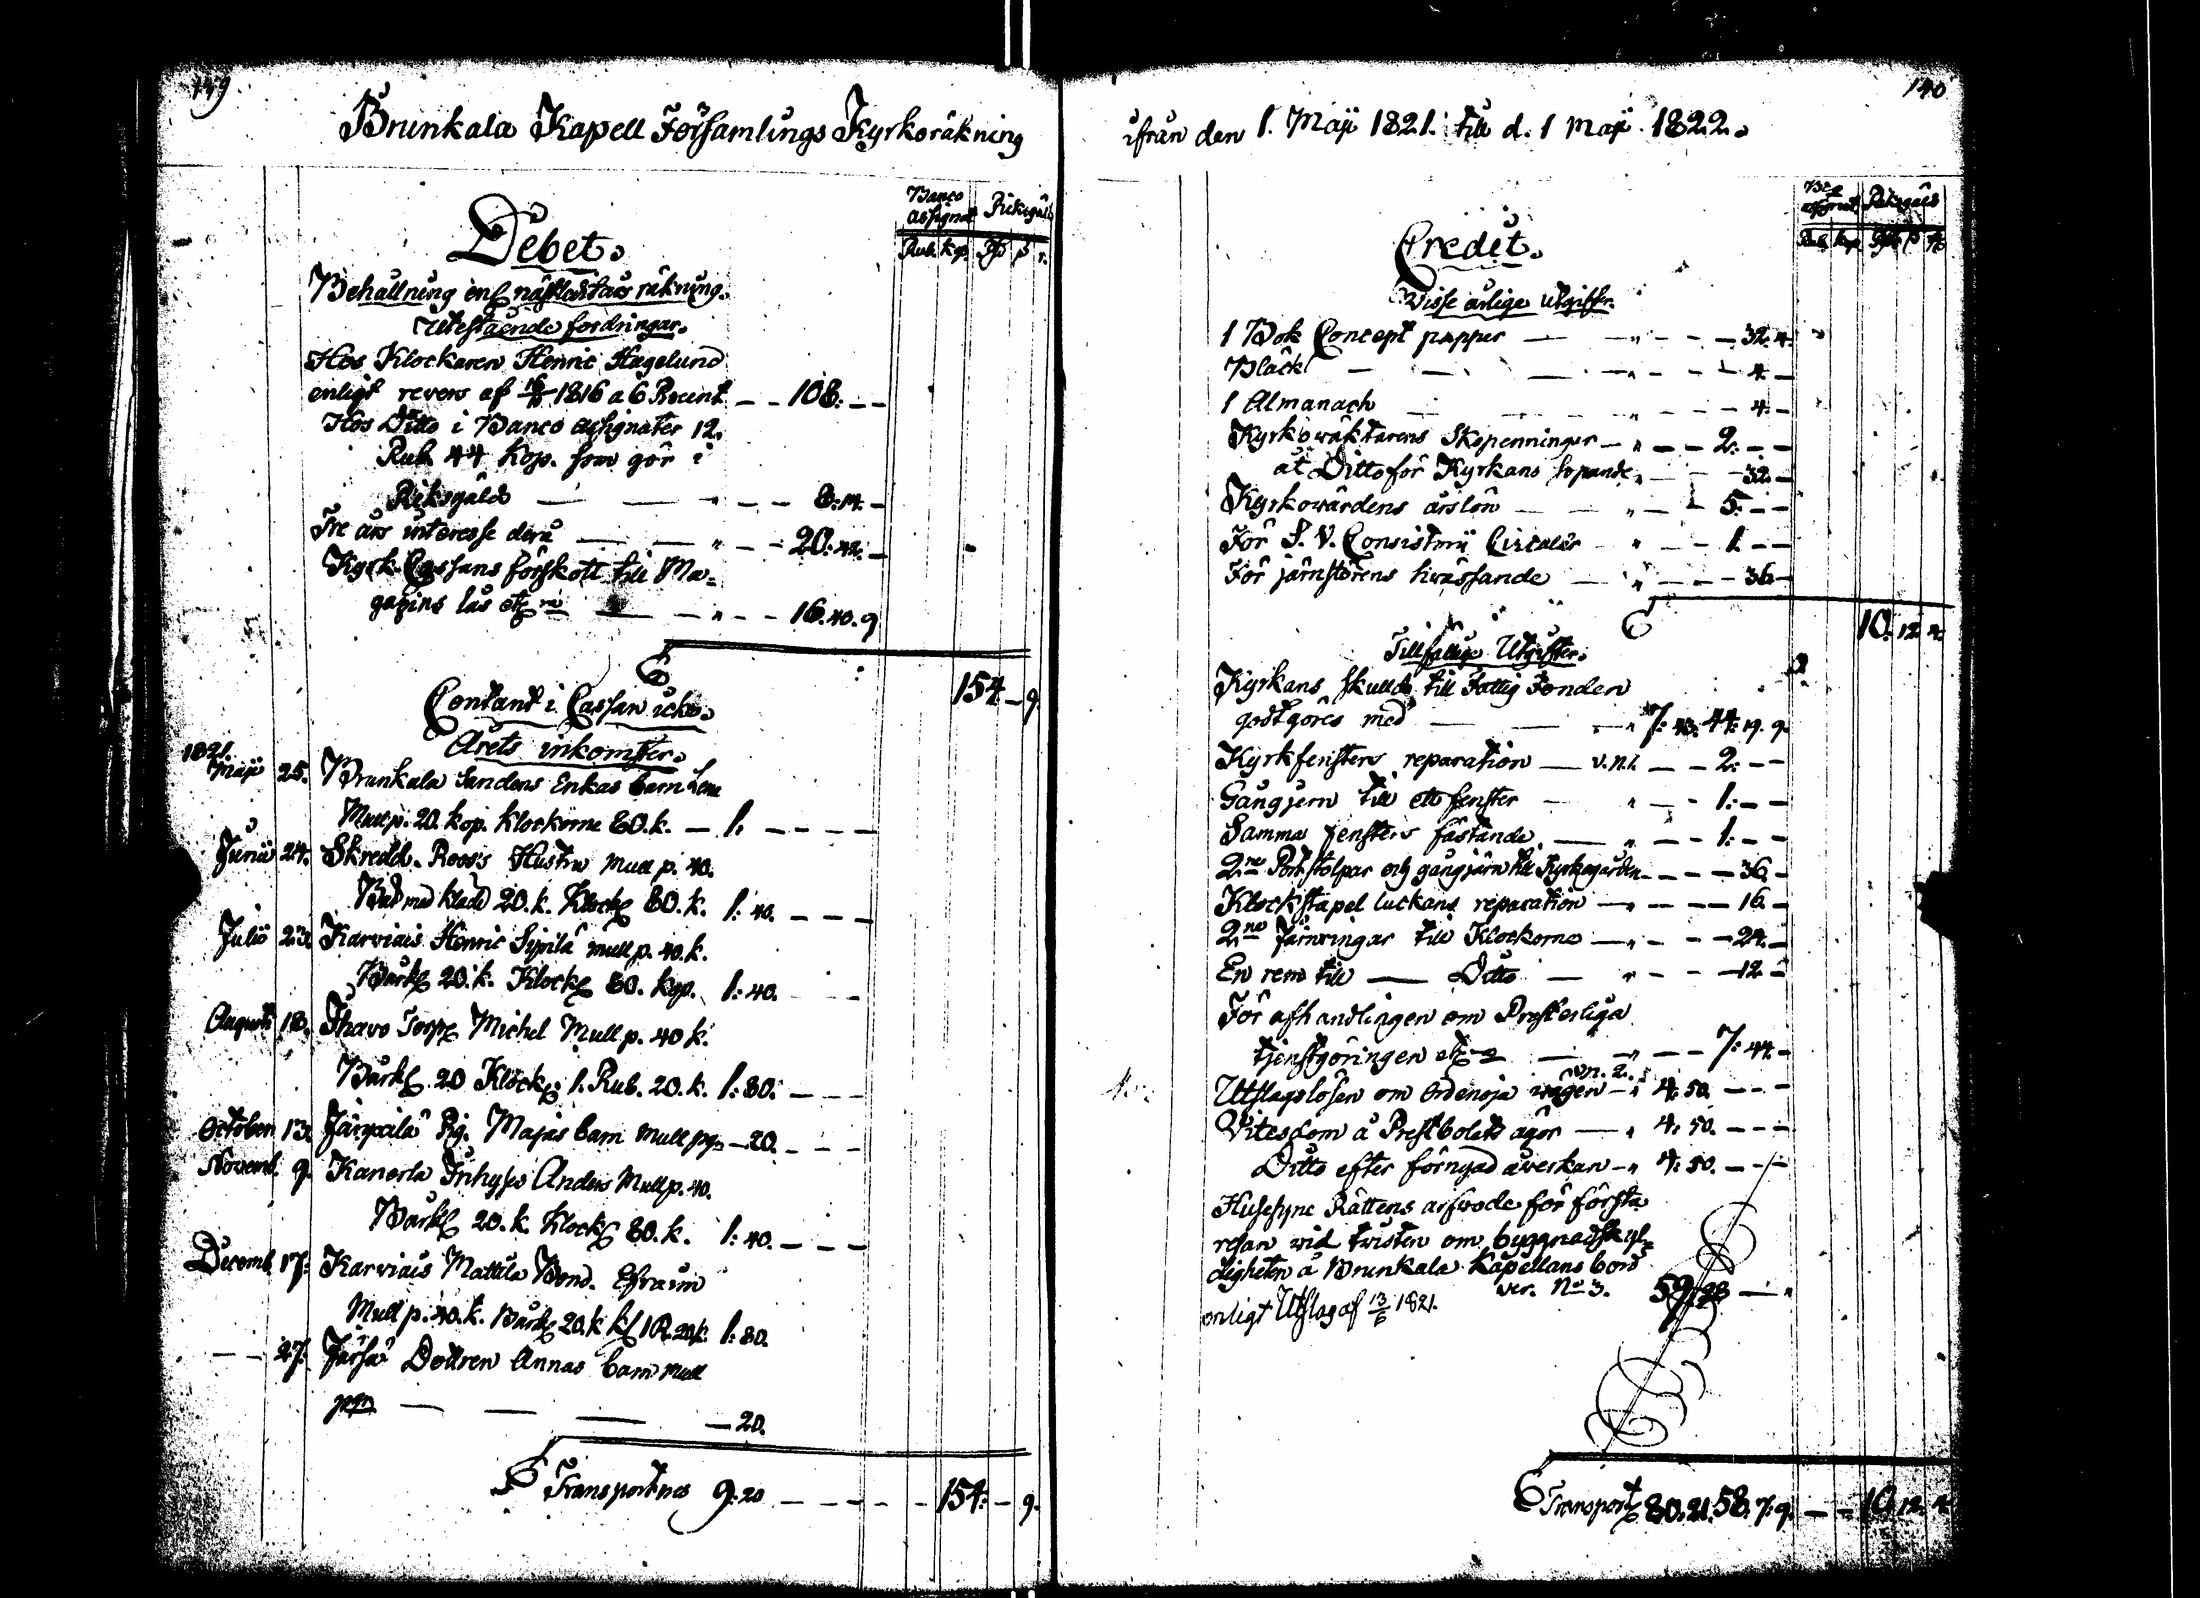 149
Brunkala Kapell Församlings Kyrkoräkning
Banco assignat Riksgäld
Rub. Kop. Rd ß r.
Debet.
Behållning enl. näst räkning.
Utestående fordringar.
Hos Klockaren Henric Hagelund
enligt revers af 1816 a 6 Rcent — — 108. — —
Hos Ditto i Banco assignater 12.
Rub. 44 kop. som gör i
Riksgäld — — " — — 8: 14. —
Tre års interesse derå — — " — — 20: 42. —
Kyrk Cassans förskott till Ma=
gazins lås etc — " — — 16. 40. 9
154 — 9.
Contant i Cassan icke.
Årets inkomster.
1821.
Maji 25. Brunkala Sandens Enkas barn
Mull p. 20. kop. Klockorne 80. k. — 1. — — — —
Junii 24. Skredd. Roos's Hustru Mull p. 40.
klädd 20. k. Klock 80. k. 1: 40. — — —
Julii 23. Karviais Henric Sipilä mull p. 40. k.
20. k. Klock 80. kop. 1: 40. — —
Augusti 18. Thavo Torp Michel Mull p. 40 k.
20 Klock 1. Rub. 20. k. 1: 80. — — —
October 13. Järpilä Pig. Majas barn Mull pgn — 20. — — —
Novemb. 9. Kanerla Inhyses Anders Mull p. 40.
20. k. Klock 80. k. 1: 40. — — —
Decemb. 17. Karviais Mattila Bond. Efraim
Mull p. 40. k. 20. k 1 R. 20 k. 1: 80.
— 27. Järsä Dottren Annas barn Mull
pgn — — — — 20.
Transporteras 9: 20 — — — — 154. — 9.
140
ifrån den 1. Maji 1821. till d. 1 Maji 1822.
Riksgäld
Rub. Kop. Rd ß
Credit.
Wisse årlige Utgifter.
1 Bok Concept papper — " — — — 32. 4.
Bläck — — " — — — 4. —
1 Almanach — " — — — 4. —
Kyrkowäktarens Skopenningar — " — — 2. — —
åt Ditto för Kyrkans sopande " — — 32. —
Kyrkowärdens årslön — " — — 5. — —
För S. V. Consistorii — " — — 1. — —
För järnstörens hwässande — " — — 36 —
10. 12. 4.
Tillfällige Utgifter.
Kyrkans skuld till Fattig Fonden
godtgöres med — " 7: 43. 44: 19. 9.
Kyrkfensters reparation — v. n. 1. — — 2. — —
Gångjern till ett fenster — " — — 1: — —
Samma fensters fästande — " — — 1: — —
2ne Port stolpar och gångjärn till Kyrkogården — — — 36. —
Klockstapel luckans reparation — " — — 16 —
2ne Järnringar till Klockorne — " — — 24. —
En rem till — Ditto — " — — 12 —
För afhandlingen om Presterliga
tjenstgöringen etc — " — — 7: 44 —
Utslagslösen om Ordenoja wägen — " 4: 50. — — —
Vitesdom å Prestbolets ägor — " 4: 50. — — —
Ditto efter förnyad åwerkan — " 4: 50. — — —
Husesyne Rättens arfwode för första
resan wid twisten om byggnadskyl=
digheten å Brunkala Kapellans bord
enligt Utslag af 13/6 1821. ver. No 3. 59: 28 — "
Transport 80. 21. 58. 7. 9. — — 10. 12. 4.